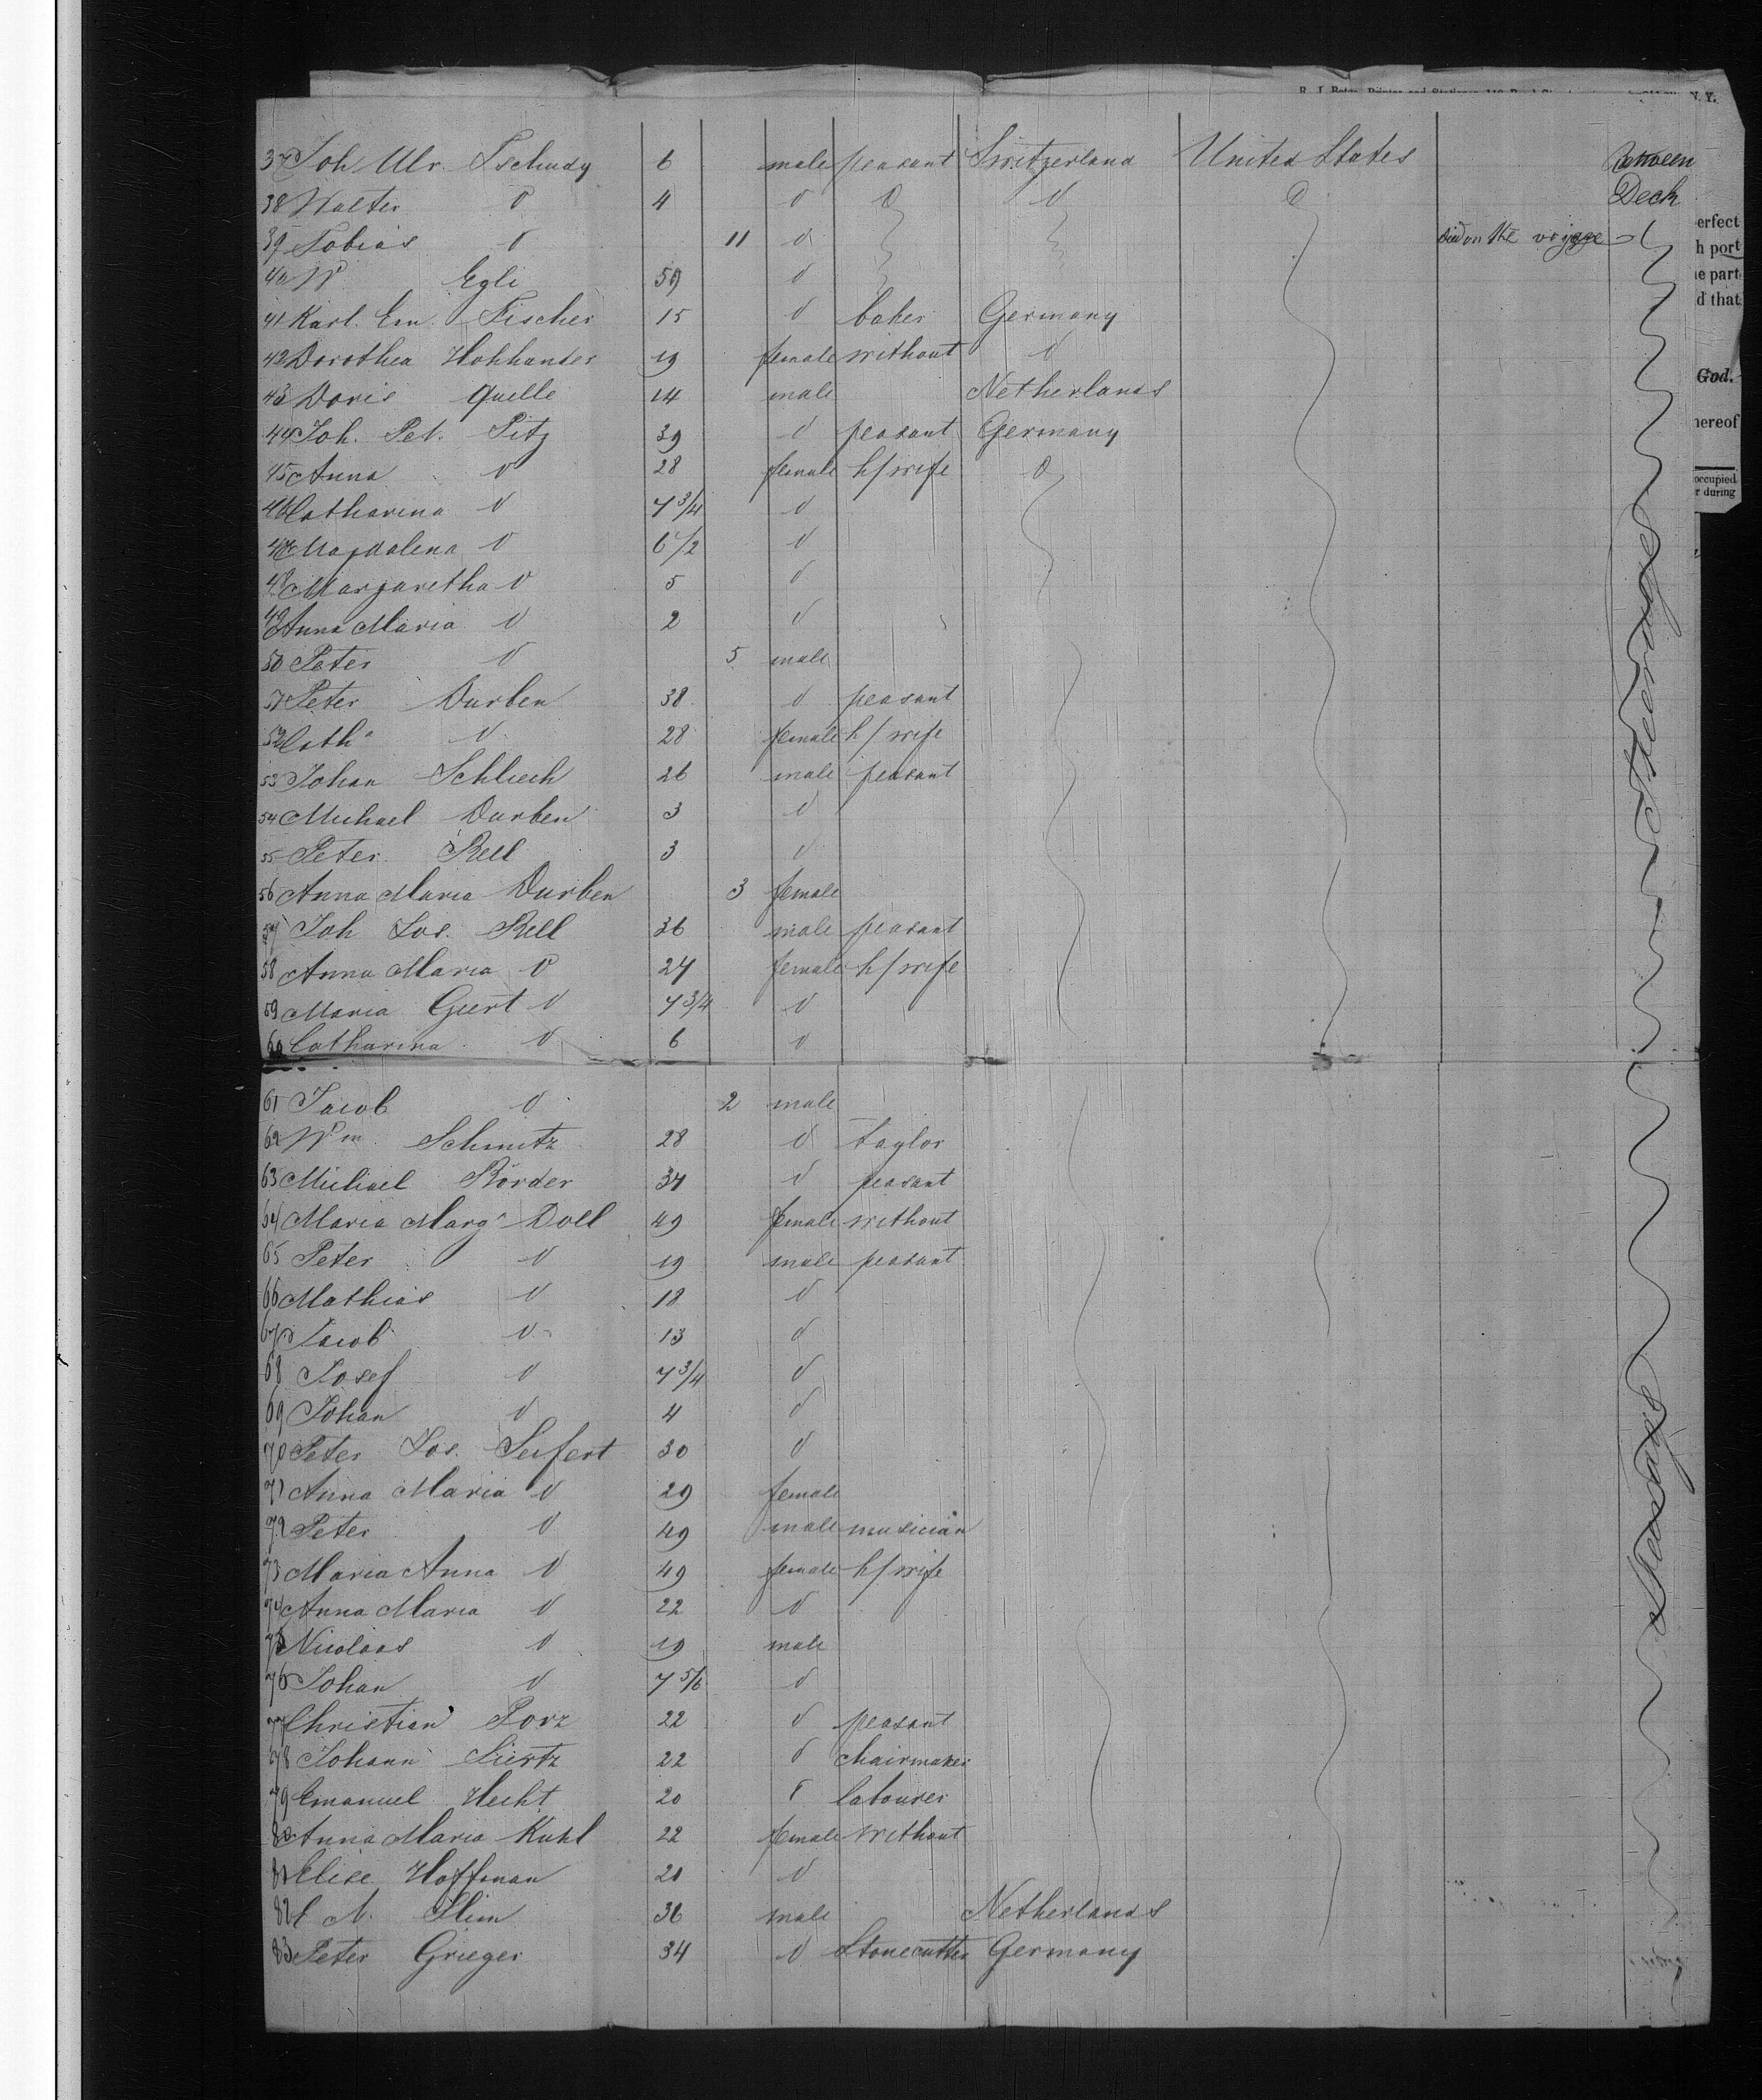 N. Y.
37 Joh Ulr. Tschudy 6 male peasant Switzerland United States Between
38 Walter 4 Deck
39 Tobias 11 died on the voyage
40 W Egli 59
41 Karl. Em. Fischer 15 baker Germany
42 Dorothea 19 female without
43 Doris Quelle 14 male Netherlands
44 Joh. Pet. Pitz 39 peasant Germany
45 Anna 28 female h/wife
46 Catharina 7 3/4
47 Magdalena 6 1/2
48 Margaretha 5
49 Anna Maria 2
50 Peter 5 male
51 Peter Durben 38 peasant
52 Cath a 28 female h/wife
53 Johan Schlech 26 male peasant
54 Michael Durben 3
55 Peter Rell 3
56 Anna Maria Durben 3 female
57 Joh Jos. Rell 36 male peasant
58 Anna Maria 24 female h/wife
59 Maria Geert 7 3/4
60 Catharina 6
61 Jacob 2 male
62 Wm. Schmitz 28 taylor
63 Michael Rörder 34 peasant
64 Maria Marga Doll 49 female without
65 Peter 19 male peasant
66 Mathias 18
67 Jacob 13
68 Josef 7 3/4
69 Johan 4
70 Peter Jos. Seifert 30
71 Anna Maria 29 female
72 Peter 49 male musician
73 Maria Anna 49 female h/wife
74 Anna Maria 22
75 Nicolaas 19 male
76 Johan 7 5/6
77 Christian Porz 22 peasant
78 Johann 22 Chairmaker
79 Emanuel Hecht 20 labourer
80 Anna Maria Kuhl 22 female without
81 Elise Hoffman 20
82 36 male Netherlands
83 Peter Grieger 34 Stonecutter Germany
Steerage
erfect
h port
e part
d that
God.
hereof
occupied
r during